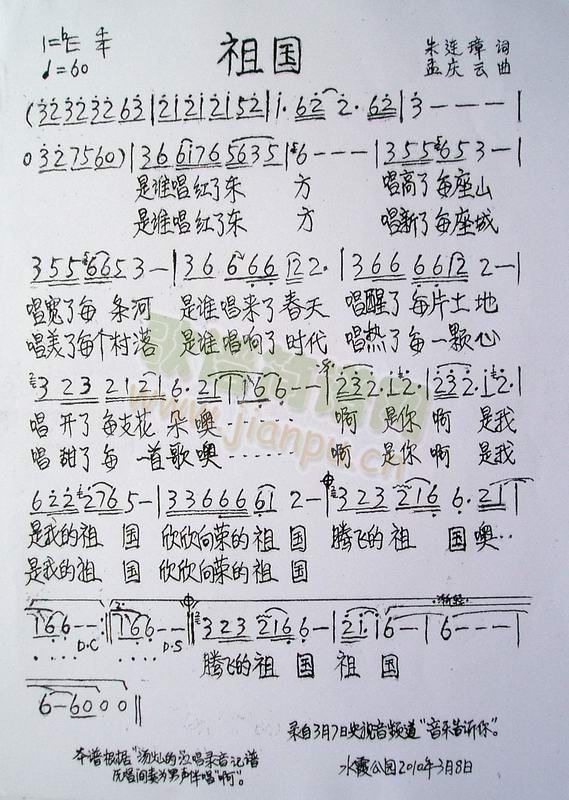 1=♭E 4/4
祖国
朱连璋 词
♩=60
孟庆云 曲
(323232 63|212121 52|1· 62 2· 62|3 - - - |
0 327560)|36 6176 5635|6 - - - |355 653 - |
是谁唱红了东 方 唱高了每座山
是谁唱红了东 方 唱新了每座城
355 6653 - |36 666 122·|366 6612 2 - |
唱宽了每 条河 是谁唱来了春天 唱醒了每片土地
唱美了每个村落 是谁唱响了时代 唱热了每一颗心
323 212|6· 21 166 - - |232·12·|232·12·|
唱 开了 每支花 朵噢········ 啊 是你 啊 是我
唱 甜了 每 一首歌噢········ 啊 是你 啊 是我
622 2765 - |33666 61 2 - |323 216 6· 21|
是我的祖 国 欣欣向荣的祖国 腾飞的祖 国噢··
是我的祖 国 欣欣向荣的祖国
166 - - :|166 - - |323 2166 - |21·16 - |6 - - - |
渐轻
D.C D.S
腾飞的祖 国 祖 国
6 - 6000‖
录自3月7日央视音频道"音乐告诉你"。
本谱根据"汤灿的演唱录音记谱
水霞公园2010年3月8日
歌谱简谱网
www.jianpu.cn